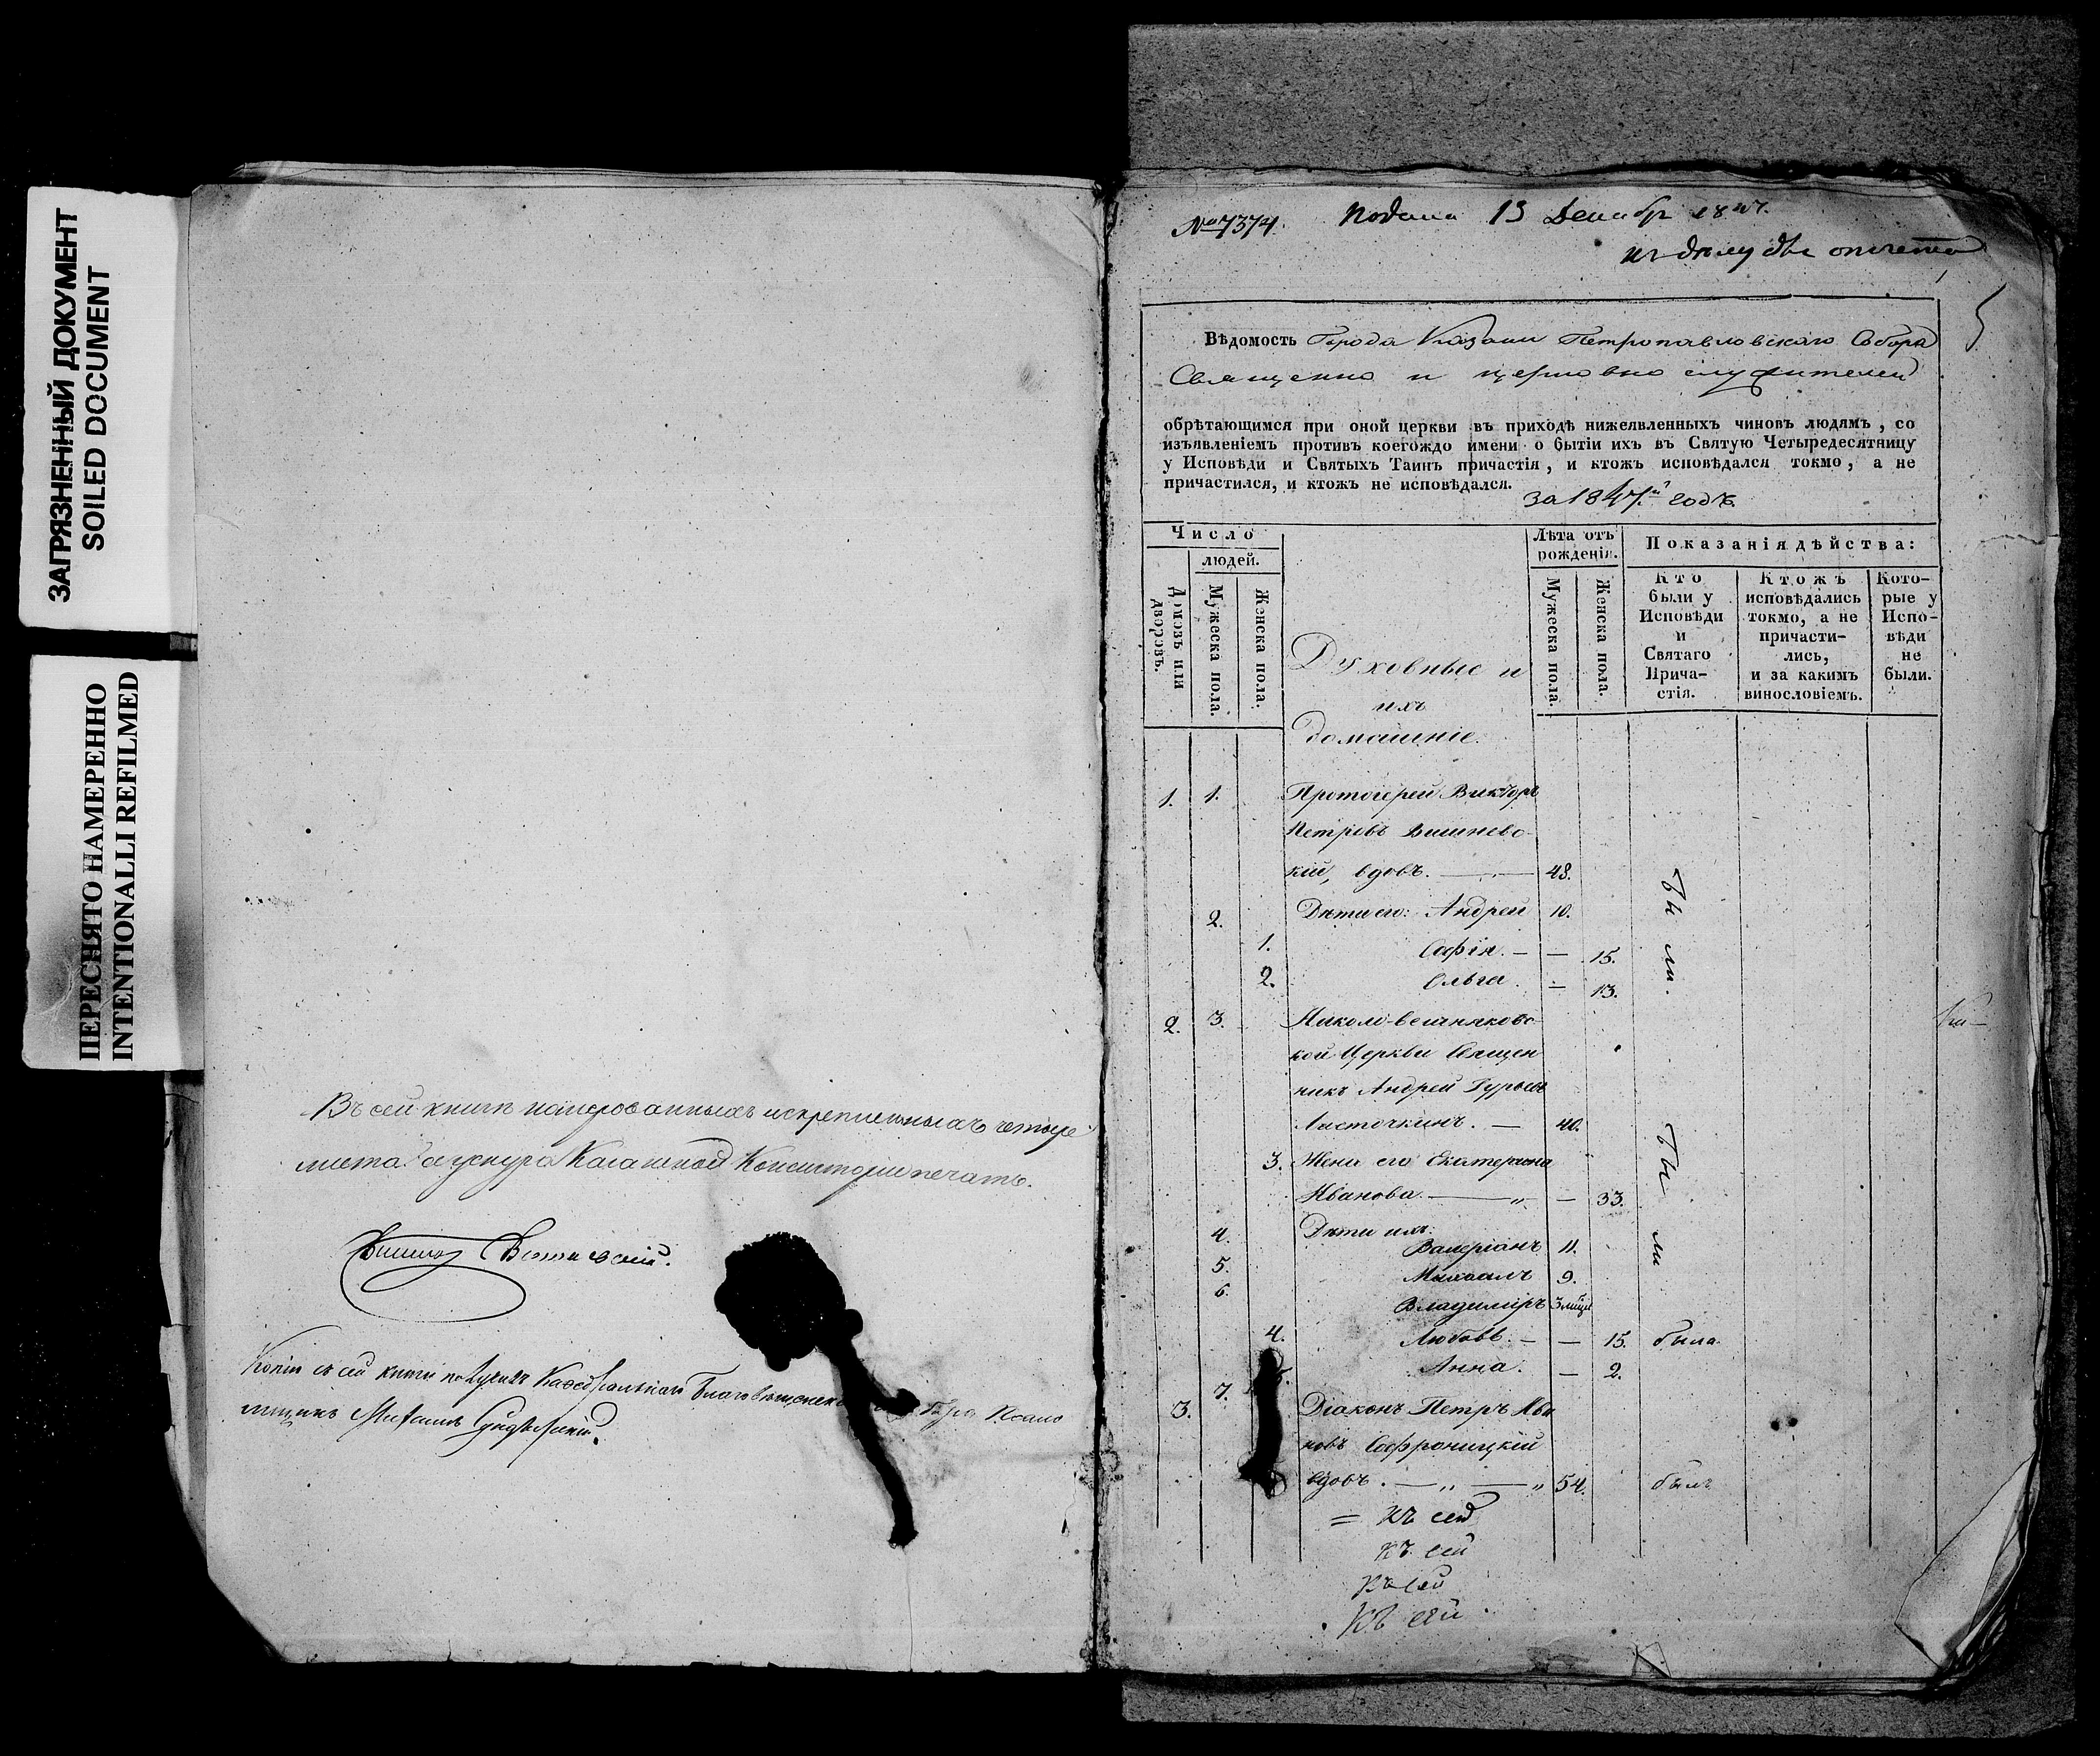 ЗАГРЯЗНЕННЫЙ ДОКУМЕНТ
SOILED DOCUMENT
ПЕРЕСНЯТО НАМЕРЕННО
INTENTIONALLI REFILMED
Въ сей книгѣ нумерованныхъ и скрепленныхъ четыре
листа Казанской Консисторіи печать.
Копію съ сей книги получилъ Каѳедральнаго Благовѣщенск
Михаилъ
№ 7374. Подана 13 Декабр 1847.
къ дѣлу отчета
5
Вѣдомость Города Казани Петропавловскаго Собора
Священно и церковно служителей
обрѣтающимся при оной церкви въ приходѣ нижеявленныхъ чиновъ людямъ, со
изъявленіемъ противъ коегождо имени о бытіи ихъ въ Святую Четыредесятницу
у Исповѣди и Святыхъ Таинъ причастія, и ктожъ исповѣдался токмо, а не
причастился, и ктожъ не исповѣдался.
за 1847й годъ.
Число
людей.
Домовъ или дворовъ.
Мужеска пола.
Женска пола.
Духовные и
ихъ
домашніе.
Лѣта отъ рожденія.
Мужеска пола.
Женска пола.
Показанія дѣйства:
Кто были у Исповѣди и Святаго Прича-стія.
Ктожъ исповѣдались токмо, а не причасти-лись, и за какимъ винословіемъ.
Кото-рые у Испо-вѣди не были.
1. 1. Протоіерей Викторъ
Петровъ Вишневс-
кій, вдовъ. — 48.
2. Дѣти его: Андрей 10.
1. Софія. — — 15.
2. Ольга. — 13.
Были.
2. 3. Николо-вешняковс-
кой Церкви Священ
никъ Андрей Гурьевъ
Ласточкинъ. — 40.
3. Жена его Екатерина
Иванова. — „ — 33.
Были
4. Дѣти ихъ:
Валеріанъ 11.
5. Михаилъ 9.
6. Владиміръ 3 мѣся
4. Любовь. — — 15. была.
5. Анна. — 2.
3. 7. Діаконъ Петръ Ива
новъ Сафроницкій
вдовъ. — „ — „ 54. былъ
= къ сей
къ сей
къ сей
къ сей.